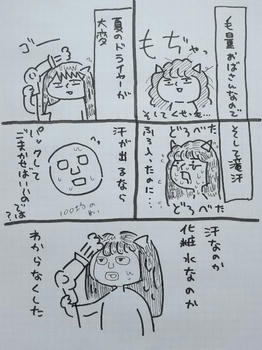 毛量おばさんなので
もぢゃ
そしてくせ毛…
夏のドライヤーが
大変
ゴー
そして滝汗
どろべた
ふろ入ったのに…
どろべた
汗が出るなら
パックして
ごまかせばいいのでは
?
100均のやつ
汗なのか
化粧水なのか
わからなくした